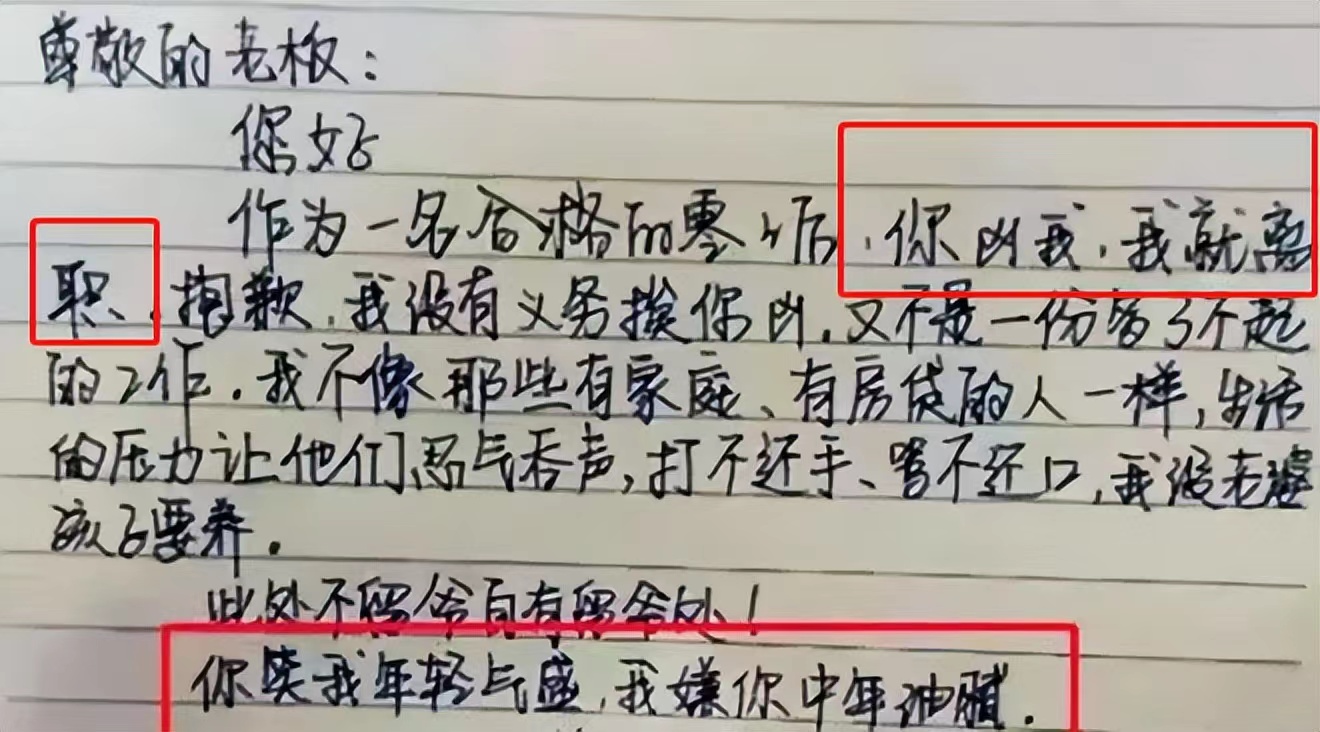 尊敬的老板：
你好
作为一名合格的零零后，你凶我，我就离
职，抱歉，我没有义务挨你凶，又不是一份多了不起
的工作，我不像那些有家庭、有房贷的人一样，生活
的压力让他们忍气吞声，打不还手、骂不还口，我没老婆
孩子要养。
此处不留爷自有留爷处！
你笑我年轻气盛，我嫌你中年油腻．